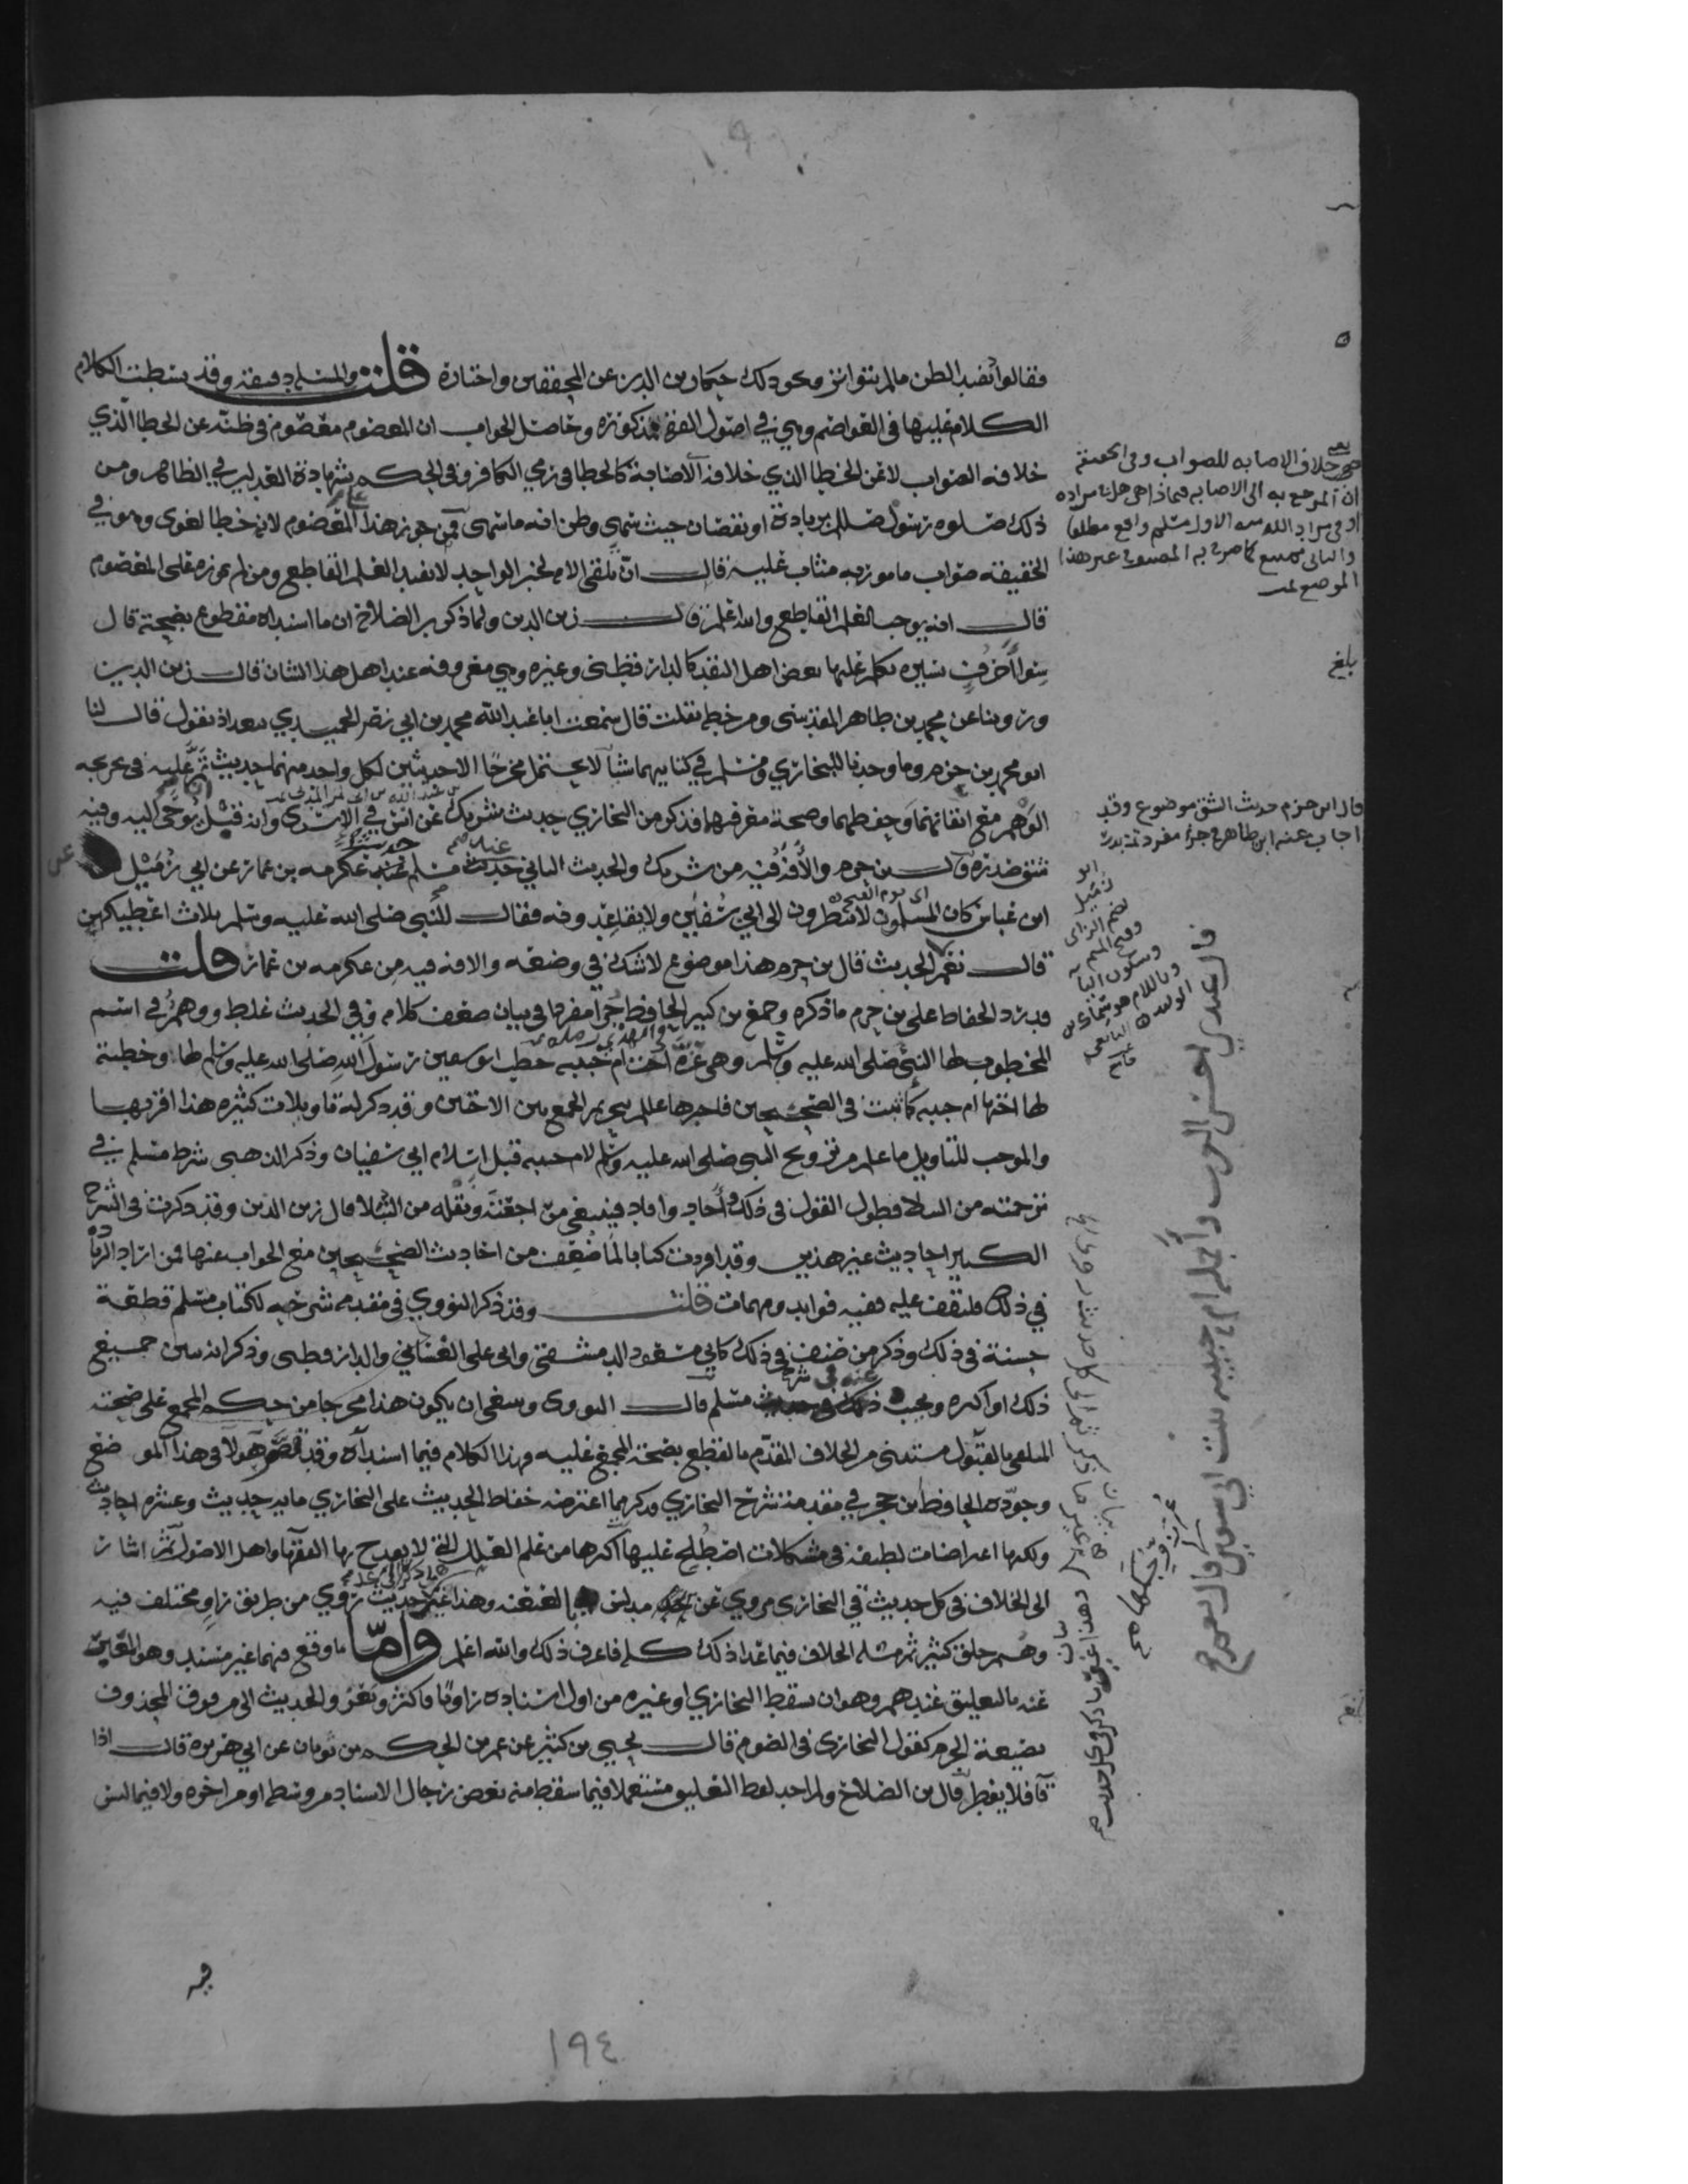 فقالوا يفيد الظن ما لم يتواتر ونحو ذلك حكى زين الدين عن المحققين واختاره قلت والمسئلة دقيقة وقد بسطت الكلام
الكلام عليها في العواصم وهي في اصول الفقه مذكورة وحاصل الجواب ان المعصوم معصوم في ظنه عن الخطا الذي
خلافه الصواب لا عن الخطا الذي خلافه الاصابة كالخطا في رمي الكافر وفي الحكم بشهادة العدلين في الظاهر ومن
ذلك صلوه رسول الله بزيادة او نقصان حيث سهى وظن انه ما سهى فمن جوز هذا على المعصوم لانه خطا لغوي وهو في
الحقيقة صواب مامور به مثاب عليه قال ان تلقي الامة لخبر الواحد لا يفيد العلم القاطع ومن لم يجوزه على المعصوم
قال انه يوجب العلم القاطع والله اعلم قال زين الدين ولما ذكر بن الصلاح ان ما اسنداه مقطوع بصحته قال
سوى احرف يسيره تكلم عليها بعض اهل النقد كالدارقطني وغيره وهي معروفه عند اهل هذا الشان قال زين الدين
وروينا عن محمد بن طاهر المقدسي ومن خطه نقلت قال سمعت ابا عبد الله محمد بن ابي نصر الحميدي ببغداذ يقول قال لنا
ابو محمد بن حزم وما وجدنا للبخاري ومسلم في كتابيهما شيئا لا يحتمل مخرجا الا حديثين لكل واحد منهما حديث تم عليه في تخريجه
الوهم مع اتقانهما وحفظهما وصحة معرفتهما فذكر من البخاري حديث شريك عن انس في الاسرى وانه قبل ان يوحى اليه وفيه
شق صدره قال بن حزم والآفة فيه من شريك والحديث الثاني عند مسلم حديث عكرمه بن عمار عن ابي زميل عن
ابن عباس كان المسلمون لا ينظرون الى ابي سفين ولا يقاعدونه فقال للنبي صلى الله عليه وسلم ثلاث اعطيكهن
قال نعم الحديث قال بن حزم هذا موضوع لا شك في وضعه والافة فيه من عكرمه بن عمار قلت
قد رد الحفاظ على بن حزم ما ذكره وجمع بن كثير الحافظ جزا مفردا في بيان ضعف كلامه وفي الحديث غلط ووهم في اسم
المخطوب لها النبي صلى الله عليه وسلم وهي عزة اخت ام حبيبه خطب ابو سفين رسول الله صلى الله عليه وسلم لها وخطبته
لها اختها ام حبيبه كما ثبت في الصحيحين فاخبرها عللم بتحريم الجمع بين الاختين وقد ذكر له تاويلات كثيره هذا اقربها
والموجب للتاويل ما علم من تزويج النبي صلى الله عليه وسلم لام حبيبه قبل اسلام ابي سفيان وذكر الذهبي شرط مسلم في
ترجمته من النبلا فطول القول في ذلك واجاد وافاد فينبغي مراجعته ونقله من النبلا قال زين الدين وقد ذكرت في الشرح
الكبير احاديث غير هذين وقد افردت كتابا لما ضعف من احاديث الصحيحين مع الجواب عنها فمن اراد الزيادة
في ذلك فليقف عليه ففيه فوايد ومهمات قلت وقد ذكر النووي في مقدمه شرحه لكتاب مسلم قطعة
حسنة في ذلك وذكر من صنف في ذلك كابي مسعود الدمشقي وابي على الغساني والدارقطني وذكر انه بين جميع
ذلك او اكثره ويجب عنه في شرح مسلم قال النووي وينبغي ان يكون هذا مخرجا من حكم المجمع على صحته
المتلقى بالقبول مستثنى من الخلاف المتقدم بالقطع بصحته المجمع عليه وهذا الكلام فيما اسنداه وقد قصر هولا في هذا الموضع
وجوده الحافظ بن حجر في مقدمته شرح البخاري فذكر مما اعترضه حفاظ الحديث على البخاري مايه حديث وعشره احاديث
ولكنها اعتراضات لطيفه في مشكلات اصطلح عليها اكثرها من علم العلل التي لا يقدح بها الفقها واهل الاصول ثم اشار
الى الخلاف في كل حديث في البخاري مروي عن مدلس بالعنعنه وهذا غير حديث روي من طريق راو مختلف فيه
وهم خلق كثير ثم مثله الخلاف فيما عدا ذلك كله فاعرف ذلك والله اعلم واما ما وقع فيهما غير مسند وهو المعبر
عنه بالتعليق عندهم وهو ان يسقط البخاري او غيره من اول اسناده راويا فاكثر ويعزو الحديث الى من فوق المحذوف
بصيغة الجزم كقول البخاري في الصوم قال يحيى بن كثير عن عمر بن الحكم بن ثوبان عن ابي هريرة قال اذا
قآ فلا يفطر قال بن الصلاح ولم اجد لفظ التعليق مستعملا فيما سقط منه بعض رجال الاسناد من وسطه او من اخره ولا فيما ليس
خلاف الاصابه للصواب وفي
بلغ
قال ابن حزم حديث الشق موضوع وقد
اجاب عنه ابن طاهر في جزء مفرد
ابو
زميل
بضم الزاى
وفتح الميم
وسكون اليا
وباللام هو سماك بن
الوليد
قال عندي احسن العرب واجمله ام حبيبه بنت ابي سفين قال نعم
١٩٤